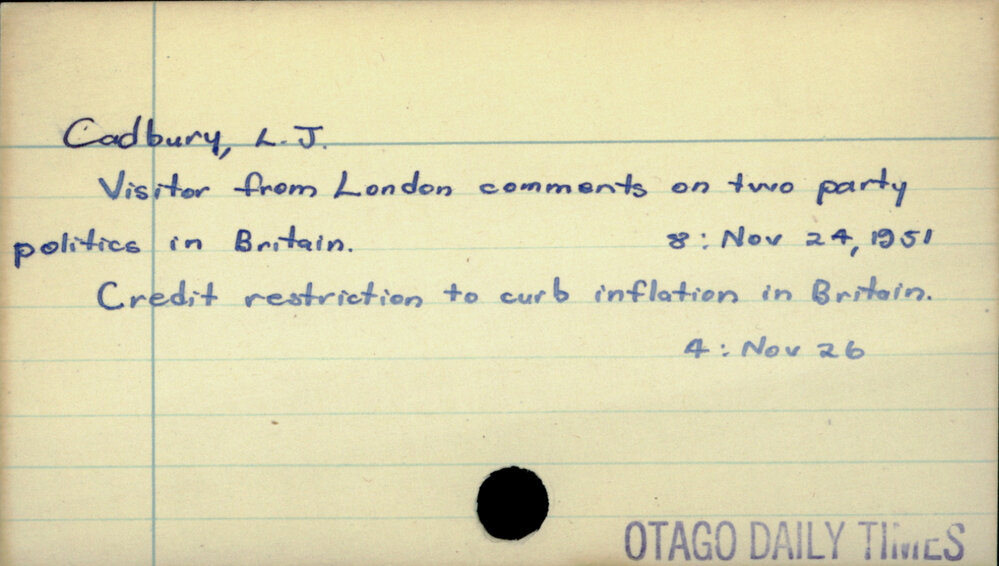 Cadbury, L. J.
Visitor from London comments on two party
politics in Britain. 8: Nov 24, 1951
Credit restriction to curb inflation in Britain.
4: Nov 26
OTAGO DAILY TIMES